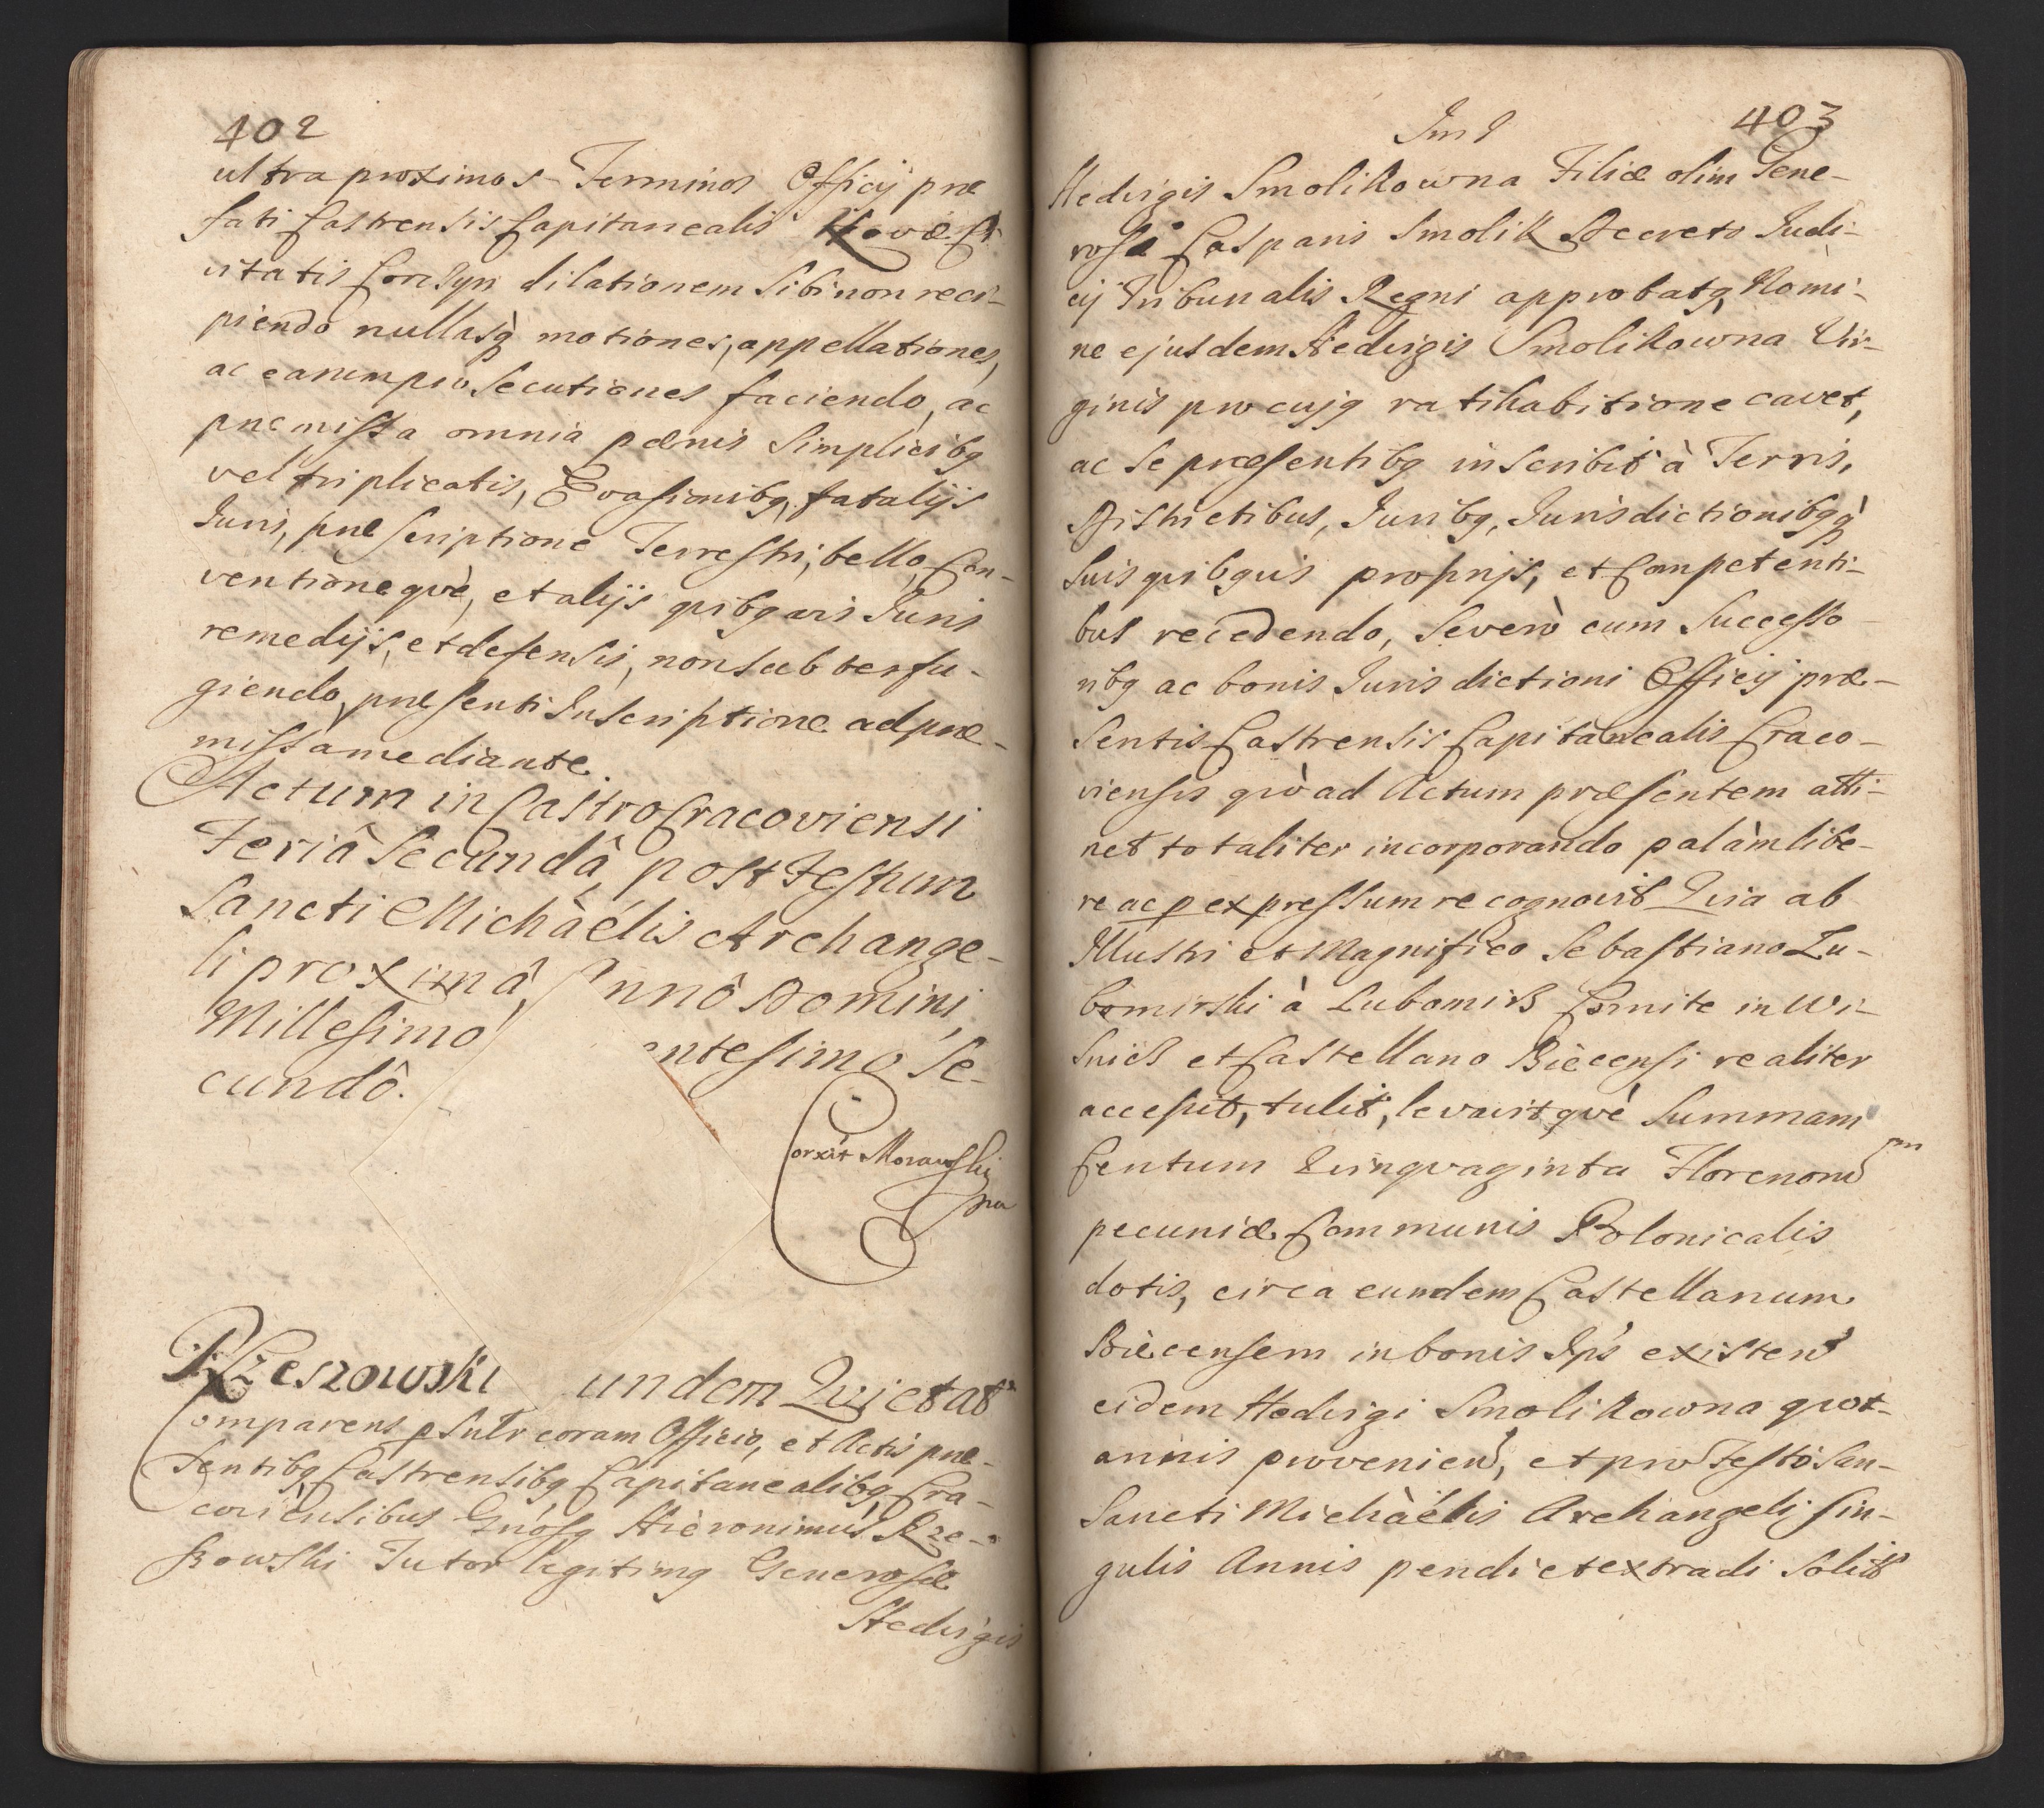 402
ultra proximos Terminos Officij præ
fati Castrensis Capitanealis Novæ Ci
vitatis Corczyn dilationem sibi non reci-
piendo nullasq̀ motiones, appellationes,
ac earum prosecutiones faciendo, ac
præmissa omnia pænis simplicibg
vel triplicatis, Evasionibg, fatalijs
Juris, præscriptione Terrestri, bello, Con-
ventioneqvè, et alijs qvibgvis Juris
remedijs, et defensis, non subterfu-
giendo, præsenti Inscriptione ad præ-
missa mediante.
Actum in Castro Cracoviensi
Feriâ Secundâ post Festum
Sancti Michàélis Archange-
li proximâ, Annô Domini
Millesimo ntesimo Se-
cundô.
Corxit Morawski
mp
Rzeszowski undem Qvietat
Comparens psnlr coram Officio, et Actis præ-
sentibg Castrensibg Capitanealibg Cra-
coviensibus Gnosg Hieronimus Rze-
szowski Tutor legitimg Generosæ
Hedvigis
403
Hedvigis Smolikowna Filiæ olim Gene-
rosi Casparis Smolik Decreto Judi-
cij Tribunalis Regni approbatg, Nomi-
ne ejusdem Hedvigis Smolikowna Vir-
ginis pro cujg ratihabitione cavet,
ac se præsentibg inscribit à Terris,
Districtibus, Juribg, Jurisdictionibgq̀
suis qvibgvis proprijs, et Competenti-
bus recedendo, se verò cum Successo
ribg ac bonis Jurisdictioni Officij præ-
sentis Castrensis Capitanealis Craco-
viensis qvòad Actum præsentem atti-
net totaliter incorporando palàm libe-
re ac p expressum recognovit Qvia ab
Illustri et Magnifico Sebastiano Lu-
bomirski à Lubomirz Comite in Wi-
snicz et Castellano Biecensi realiter
accepit, tulit, levavitqvè Summam
Centum Qvinqvaginta Florenorum
pecuniæ Communis Polonicalis
dotis, circa eundem Castellanum
Biecensem in bonis Ips existen
eidem Hedvigi Smolikowna qvot-
annis provenien, et pro Festo San-
Sancti Michàélis Archangeli sin-
gulis Annis pendi et extradi solit